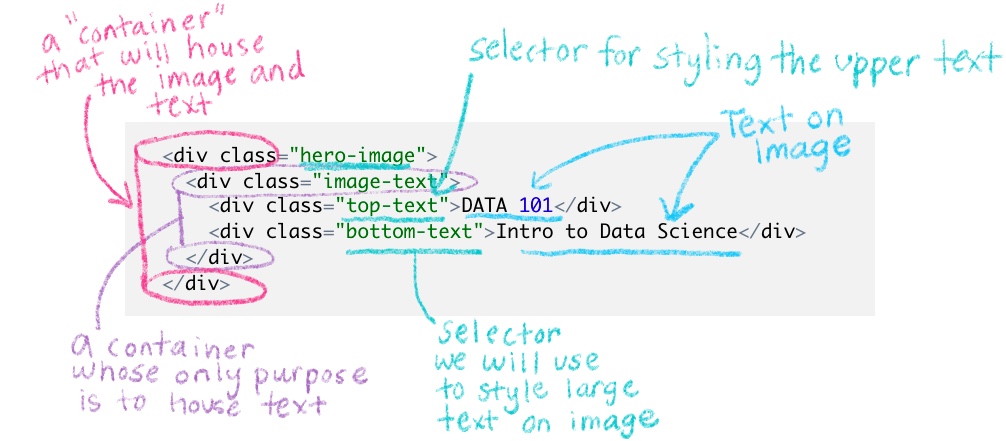 a "container"
that will house
the image and
text
selector for styling the upper text
Text on
image
<div class="hero-image">
<div class="image-text">
<div class="top-text">DATA 101</div>
<div class="bottom-text">Intro to Data Science</div>
</div>
</div>
a container
whose only purpose
is to house text
selector
we will use
to style large
text on image